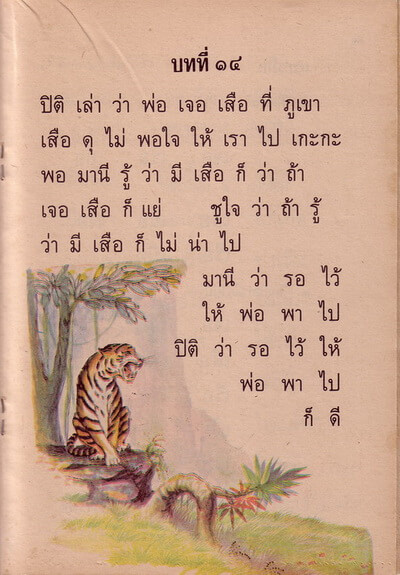 บทที่ ๑๔
ปิติ เล่า ว่า พ่อ เจอ เสือ ที่ ภูเขา
เสือ ดุ ไม่ พอใจ ให้ เรา ไป เกะกะ
พอ มานี รู้ ว่า มี เสือ ก็ ว่า ถ้า
เจอ เสือ ก็ แย่ ชูใจ ว่า ถ้า รู้
ว่า มี เสือ ก็ ไม่ น่า ไป
มานี ว่า รอ ไว้
ให้ พ่อ พา ไป
ปิติ ว่า รอ ไว้ ให้
พ่อ พา ไป
ก็ ดี